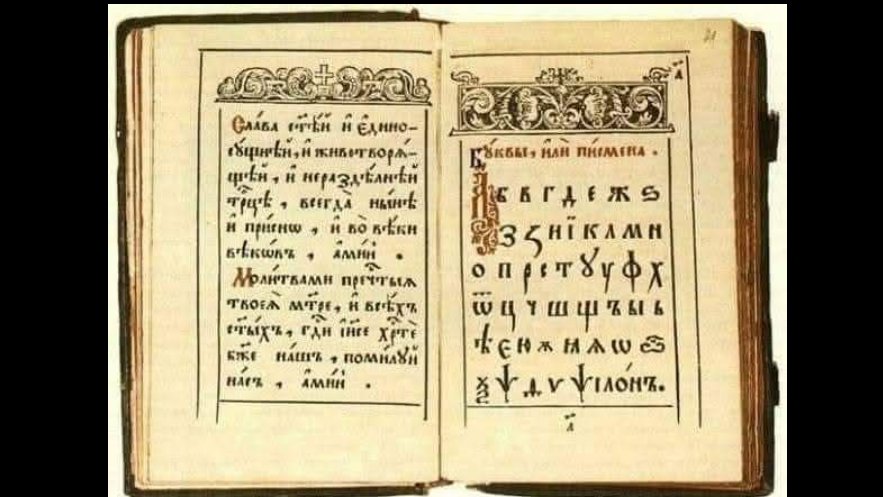 Сла́ва ст҃ѣ́й и҆ є҆дино-
сꙋ́щнѣй, и҆ животворѧ́-
щей, и҆ нераздѣ́лнѣй
трⷪ҇цѣ, всегда̀ ны́нѣ
и҆ при́снѡ, и҆ во̀ вѣ́ки
вѣкѡ́въ, а҆ми́нь.
Моли́твами пречⷭ҇тыѧ
твоеѧ̀ мт҃ре, и҆ всѣ́хъ
ст҃ы́хъ, гдⷭ҇и і҆и҃се хрⷭ҇тѐ
бж҃е на́шъ, поми́лꙋй
на́съ, а҆ми́нь.
21
а҃
Бꙋ́квы, и҆лѝ писмена̀.
А Б В Г Д Е Ж Ѕ
З Ꙁ И Ї К Л М Н
О П Р С Т Ꙋ У Ф Х
Ѿ Ц Ч Ш Щ Ъ Ы Ь
Ѣ Є Ю Ѫ Ꙗ Ѧ Ѡ
Ѯ Ѱ Д Ѵ ѱїло́нъ.
л҃